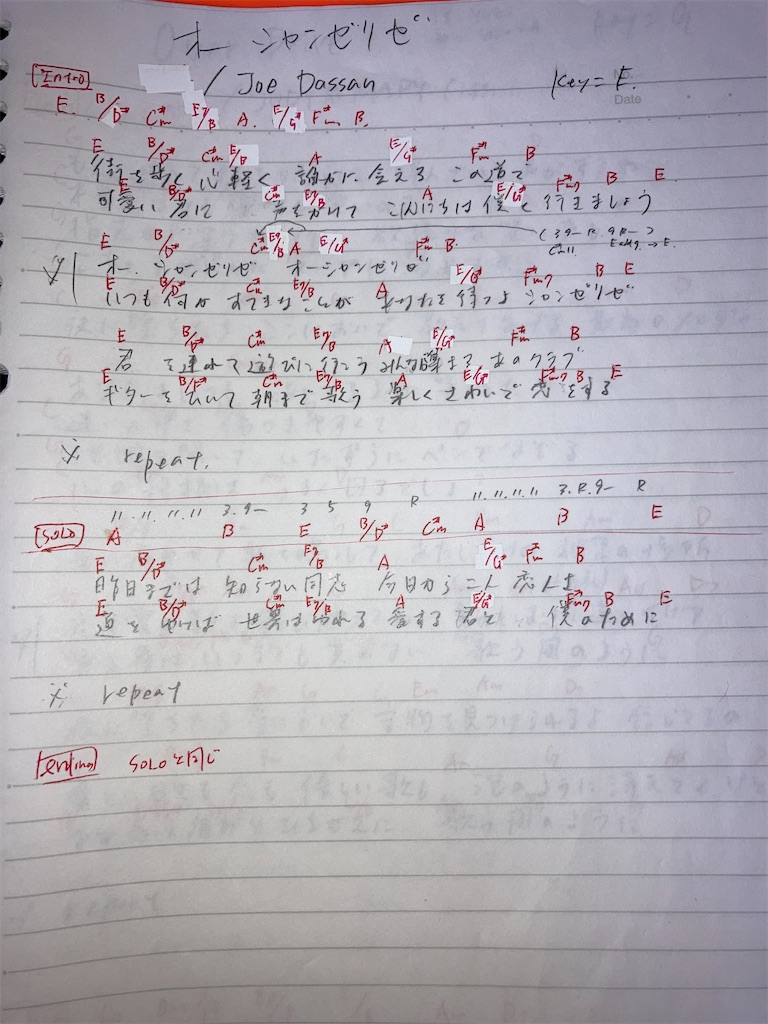 オー シャンゼリゼ
Intro / Joe Dassan Key = E.
Date
E. B/D# C#m E7/B A. E/G# F#m B.
E B/D# C#m E/B A E/G# F#m B
街を歩く 心軽く 誰かに 会える この道で
E B/D# C#m E7/B A E/G# F#m7 B E
可愛い 君に 声をかけて こんにちは 僕と 行きましょう
E B/D# C#m E7/B A E/G# F#m B.
オー. シャンゼリゼ オーシャンゼリゼ
E B/D# C#m E7/B A E/G# F#m7 B E
いつも 何か すてきな ことが あなたを 待つよ シャンゼリゼ
E B/D# C#m E7/B A E/G# F#m B
君 を 連れて 遊びに 行こう みんな 集まる あのクラブ
E B/D# C#m E7/B A E/G# F#m7 B E
ギターを ひいて 朝まで 歌う 楽しく さわいで 恋をする
※ repeat.
11. 11. 11. 11 3. 9- 3 5 9 R 11. 11. 11. 11 3. R. 9- R
SOLO A B E B/D# C#m A B E
E B/D# C#m E7/B A E/G# F#m B
昨日までは 知らない 同志 今日から 二人 恋人よ
E B/D# C#m E7/B A E/G# F#m7 B E
道を ゆけば 世界は ゆれる 愛する 君と 僕のために
※ repeat
ending SOLOと同じ